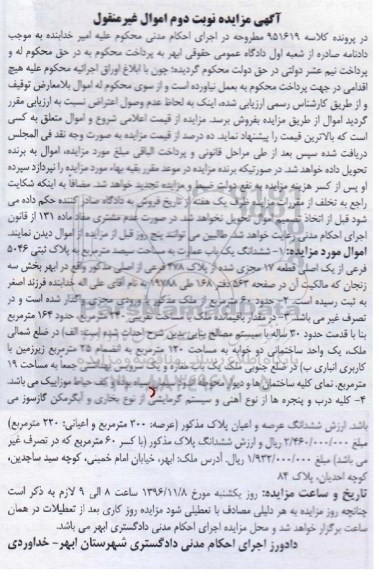 آگهی مزایده نوبت دوم اموال غیرمنقول
در پرونده کلاسه ۹۵۱۶۱۹ مطروحه در اجرای احکام مدنی محکوم علیه امیر خدابنده به موجب
دادنامه صادره از شعبه اول دادگاه عمومی حقوقی ابهر به پرداخت محکوم به در حق محکوم له و
پرداخت نیم عشر دولتی در حق دولت محکوم گردیده؛ چون با ابلاغ اوراق اجرائیه محکوم علیه هیچ
اقدامی در جهت پرداخت محکوم به بعمل نیاورده است و از سوی محکوم له اموال بلامعارض توقیف
و از طریق کارشناس رسمی ارزیابی شده، اینک به لحاظ عدم وصول اعتراض نسبت به ارزیابی مقرر
گردید اموال از طریق مزایده بفروش برسد. مزایده از قیمت اعلامی شروع و اموال متعلق به کسی
است که بالاترین قیمت را پیشنهاد نماید. ده درصد از قیمت مزایده به صورت وجه نقد فی المجلس
دریافت شده سپس بعد از طی مراحل قانونی و پرداخت الباقی مبلغ مورد مزایده، اموال به برنده
تحویل داده خواهد شد. در صورتیکه برنده مزایده در موعد مقرر بقیه بهاء مورد مزایده را نپردازد سپرده
او پس از کسر هزینه مزایده به نفع دولت ضبط و مزایده تجدید خواهد شد. مضافاً به اینکه شکایت
راجع به تخلف از مقررات مزایده ظرف یک هفته از تاریخ فروش به دادگاه صادر کننده حکم داده می
شود قبل از اتخاذ تصمیم اموال تحویل نخواهد شد. در صورت عدم مشتری مفاد ماده ۱۳۱ از قانون
اجرای احکام مدنی رعایت خواهد شد. طالبین می توانند پنج روز قبل از مزایده از اموال دیدن نمایند.
اموال مورد مزایده: ۱- ششدانگ یک باب عمارت به مساحت سیصد مترمربع به پلاک ثبتی ۵۰۴۶
فرعی از یک اصلی قطعه ۱۷ مجزی شده از پلاک ۴۷۸ فرعی از اصلی مذکور واقع در ابهر بخش سه
زنجان که مالکیت آن در صفحه ۵۶۳ دفتر ۱۶۸ طی ۱۹۷۸۸ به نام آقای طی اله خدابنده فرزند اصغر
به ثبت رسیده است. ۲- حدود ۶۰ مترمربع از ملک مذکور با ورودی مجزی واگذار شده است و در
تصرف غیر می باشد. ۳- در مقدار باقیمانده ملک به مساحت تقریبی ۲۴۰ مترمربع، حدود ۱۶۴ مترمربع
بنا با قدمت حدود ۳۰ ساله با سیستم مصالح بنایی بدین شرح احداث شده است: الف) در ضلع شمالی
ملک، یک واحد ساختمانی دو خوابه به مساحت ۱۲۰ مترمربع به انضمام ۲۵ مترمربع زیرزمین با
کاربری انباری ب) در ضلع جنوبی ملک یک باب مغازه و یک سرویس بهداشتی جمعاً به مساحت ۱۹
مترمربع. نمای کلیه ساختمان ها و دیوار محوطه آجر
و کف حیاط موزاییک می باشد.
۴- کلیه درب و پنجره ها از نوع آهنی و سیستم گرمایشی از نوع بخاری و آبگرمکن گازسوز می
باشد. ارزش ششدانگ عرصه و اعیان پلاک مذکور (عرصه: ۳۰۰ مترمربع و اعیانی: ۲۲۰ مترمربع)
مبلغ ۲/۴۶۰/۰۰۰/۰۰۰ ریال و ارزش ششدانگ پلاک مذکور (با کسر ۶۰ مترمربع که در تصرف غیر
می باشد) مبلغ ۱/۹۳۲/۰۰۰/۰۰۰ ریال. آدرس ملک: ابهر، خیابان امام خمینی، کوچه سید ساجدین،
کوچه احدیان، پلاک ۸۴
تاریخ و ساعت مزایده: روز یکشنبه مورخ ۱۳۹۶/۱۱/۸ ساعت ۸ الی ۹ لازم به ذکر است
چنانچه روز مزایده به هر دلیلی مصادف با تعطیلی شود مزایده روز کاری بعد از تعطیلات در همان
ساعت برگزار خواهد شد و محل مزایده اجرای احکام مدنی دادگستری ابهر می باشد.
دادورز اجرای احکام مدنی دادگستری شهرستان ابهر- خداوردی